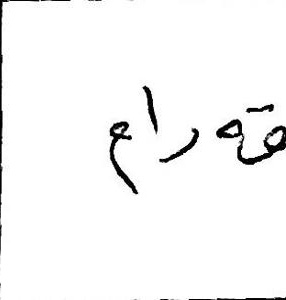 قه رام